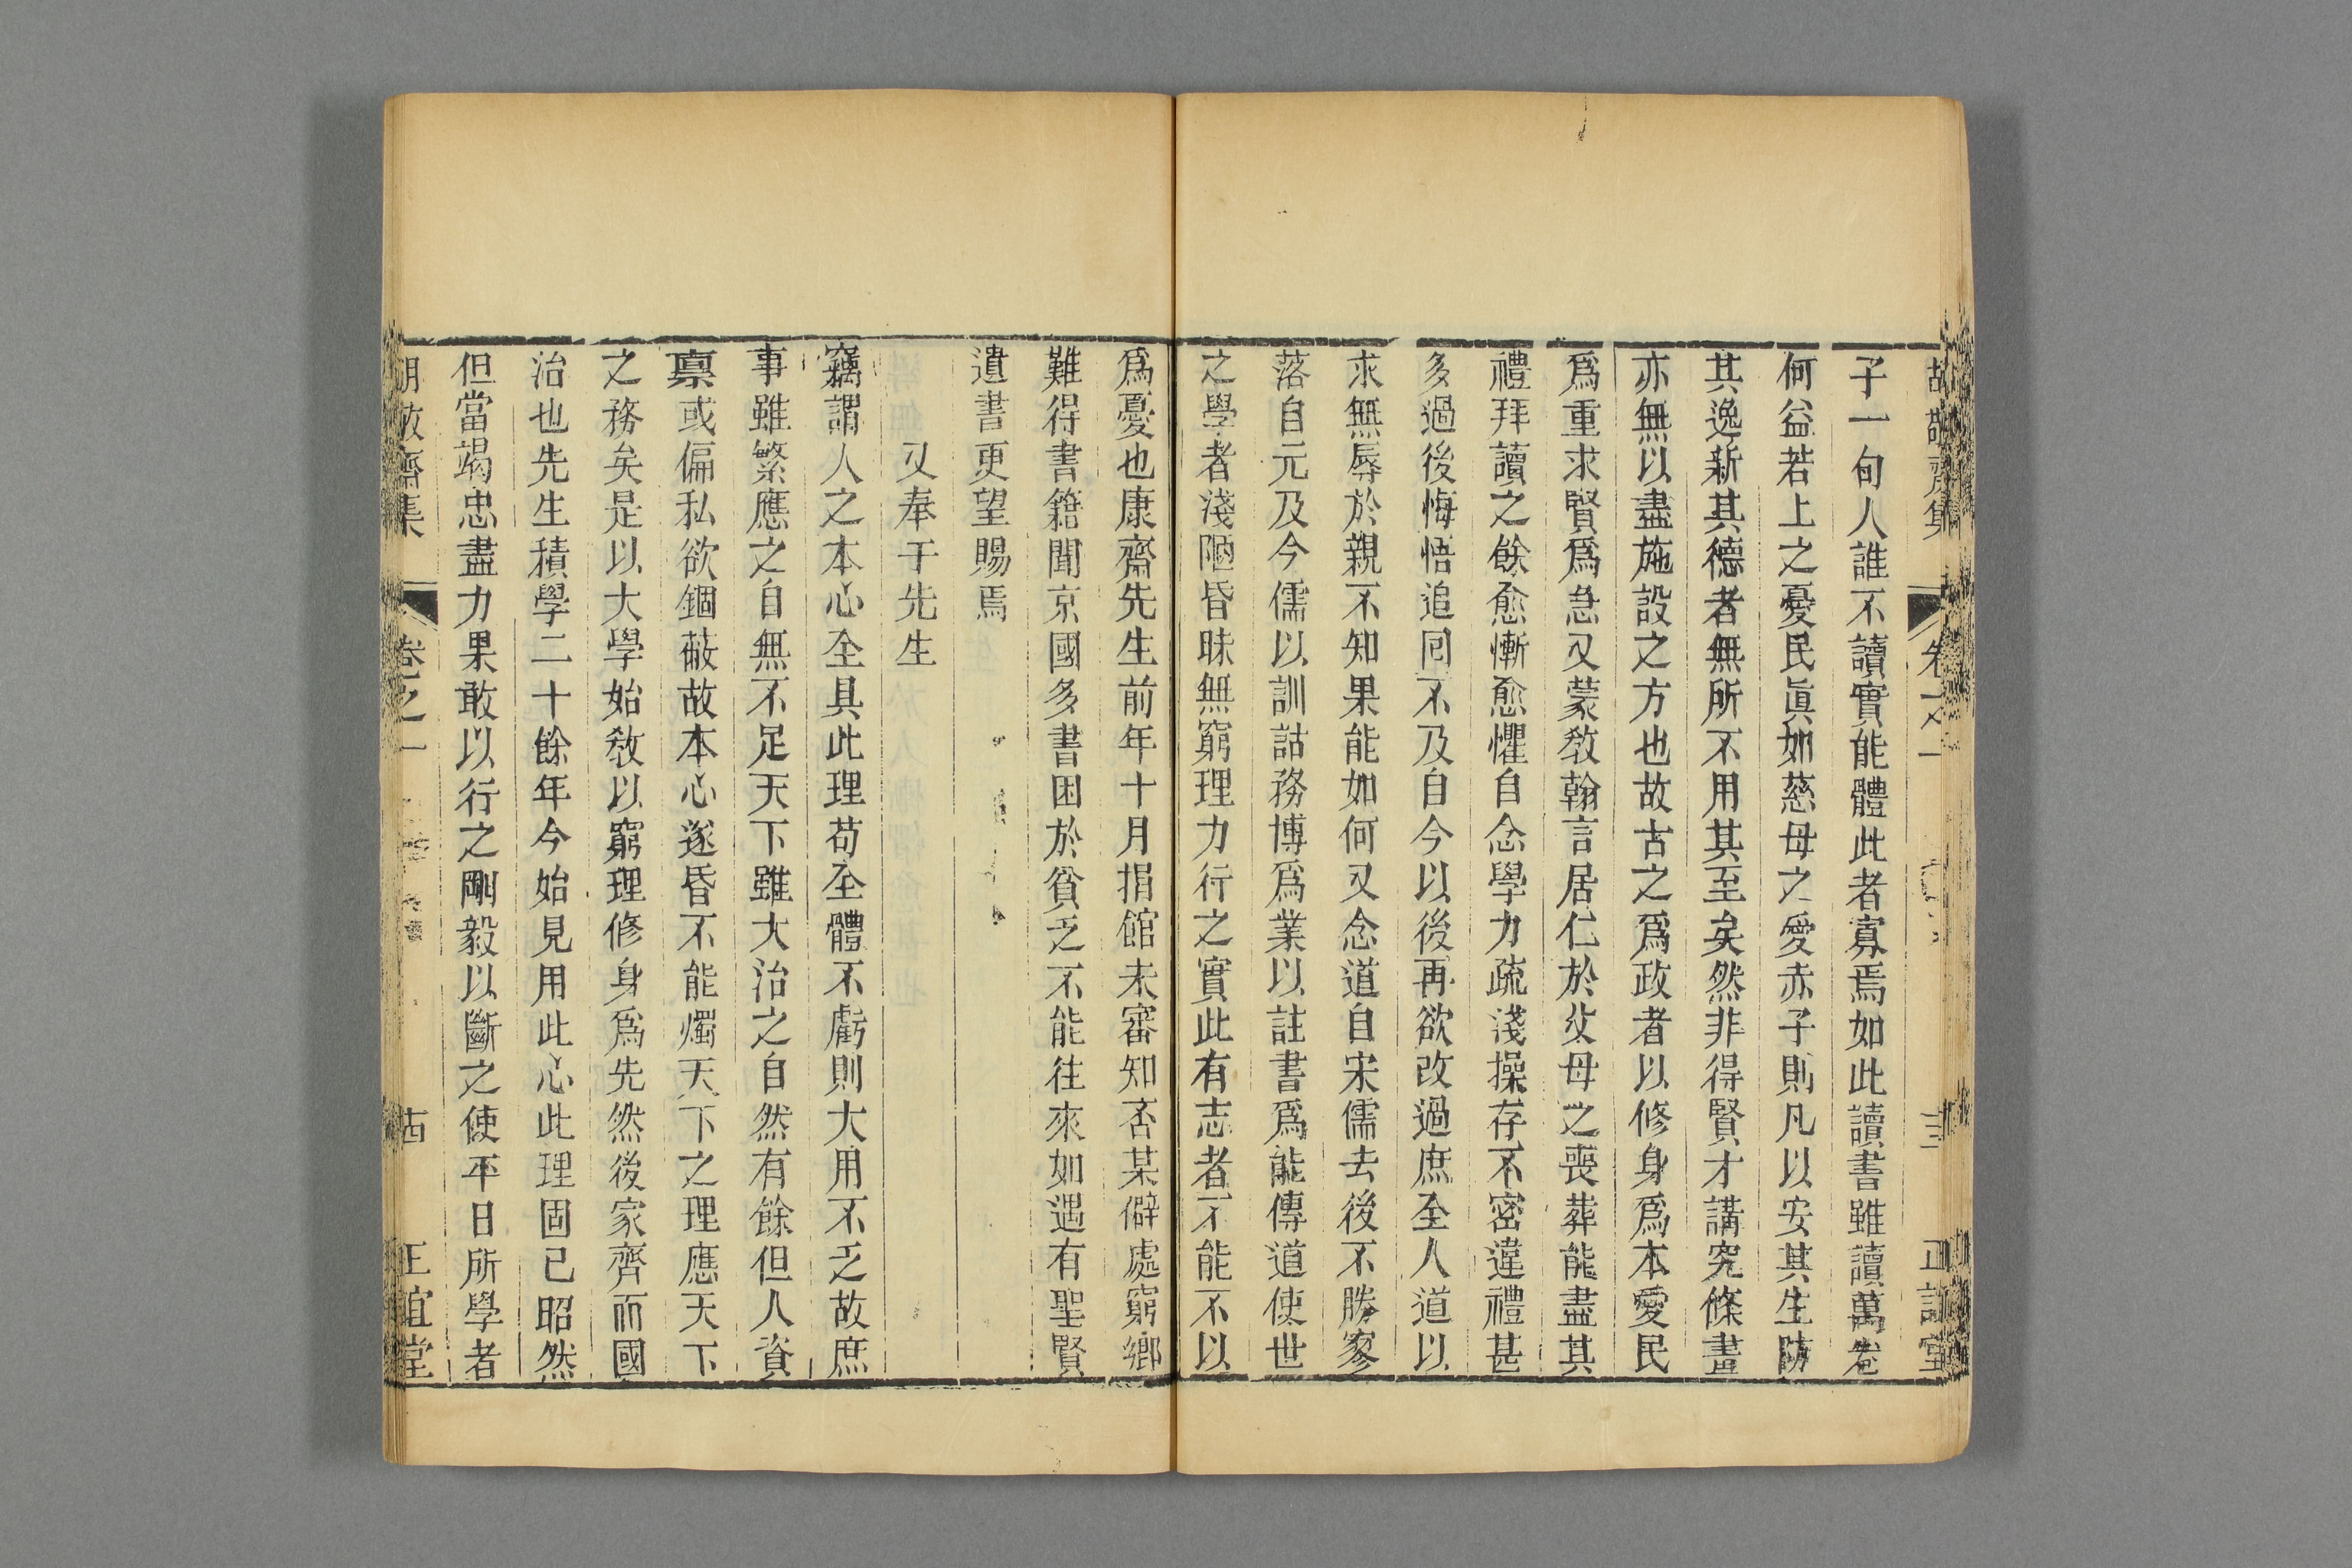 胡敬齋集 卷之一 十三 正誼堂
子一句人誰不讀實能體此者寡焉如此讀書雖讀萬卷
何益若上之憂民眞如慈母之愛赤子則凡以安其生防
其逸新其德者無所不用其至矣然非得賢才講究條畫
亦無以盡施設之方也故古之爲政者以修身爲本愛民
爲重求賢爲急又蒙教翰言居仁於父母之喪葬能盡其
禮拜讀之餘愈慚愈懼自念學力疏淺操存不密違禮甚
多過後悔悟追囘不及自今以後再欲改過庶全人道以
求無辱於親不知果能如何又念道自宋儒去後不勝寥
落自元及今儒以訓詁務博爲業以註書爲能傳道使世
之學者淺陋昏昧無窮理力行之實此有志者不能不以
爲憂也康齋先生前年十月捐館未審知否某僻處窮鄉
難得書籍聞京國多書困於貧乏不能往來如遇有聖賢
遺書更望賜焉
又奉于先生
竊謂人之本心全具此理苟全體不虧則大用不乏故庶
事雖繁應之自無不足天下雖大治之自然有餘但人資
禀或偏私欲錮蔽故本心遂昏不能燭天下之理應天下
之務矣是以大學始教以窮理修身爲先然後家齊而國
治也先生積學二十餘年今始見用此心此理固已昭然
但當竭忠盡力果敢以行之剛毅以斷之使平日所學者
胡敬齋集 卷之一 十四 正誼堂